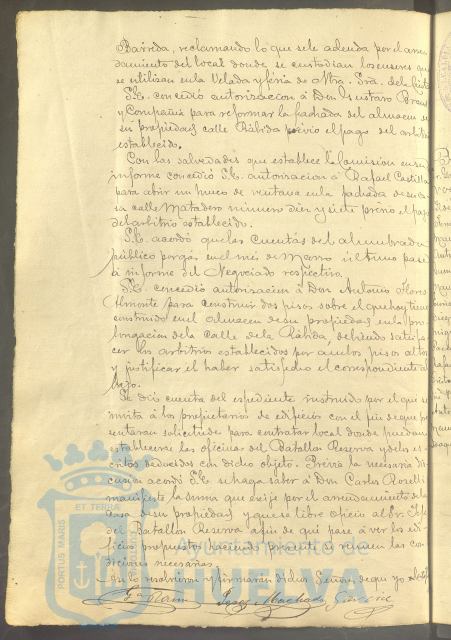 Barrida, reclamando lo que se le adeuda por el arren
damiento del local donde se custodian los enseres que
se utilizan en la Velada y feria de Ntra. Sra. de la Cinta
S.E. concedió autorizacion á Don Gustavo
y Compañía para reformar la fachada del almacen de
su propiedad calle Rábida previo el pago del arbitrio
establecido.
Con las salvedades que establece la Comision en su
informe concedió S.E. autorizacion á Rafael Castilla
para abrir un hueco de ventana en la fachada de su ca
sa calle Matadero número diez y siete previo el pago
del arbitrio establecido.
S.E. acordó que las cuentas del alumbrado
público por gas en el mes de Marzo último pase
á informe del Negociado respectivo.
S.E. concedió autorizacion á Don Antonio Flores
Almonte para construir dos pisos sobre el que hoy tiene
construido en el almacen de su propiedad en la pro
longacion de la calle de la Rábida, debiendo satisfa
cer los arbitrios establecidos por ambos pisos altos
y justificar el haber satisfecho el correspondiente al
bajo.
Se dió cuenta del espediente instruido por el que se
invita á los propietarios de edificios con el fin de que pre
sentaran solicitudes para contratar local donde puedan
establecerse las oficinas del Batallon Reserva y de los es
critos deducidos con dicho objeto. Previa la necesaria dis
cusion acordó S.E. se haga saber á Don Carlos Roselli
manifieste la suma que exije por el arrendamiento de la
casa de su propiedad y que se libre oficio al Sr. Jefe
del Batallon Reserva afin de que pase á ver los edi
ficios propuestos haciendo presente si reunen las con
diciones necesarias.
Asi lo resolvieron y firmaran dichos Señores, de que yo
Machado
PORTUS MARIS
ET TERRAE
Ayuntamiento de
HUELVA